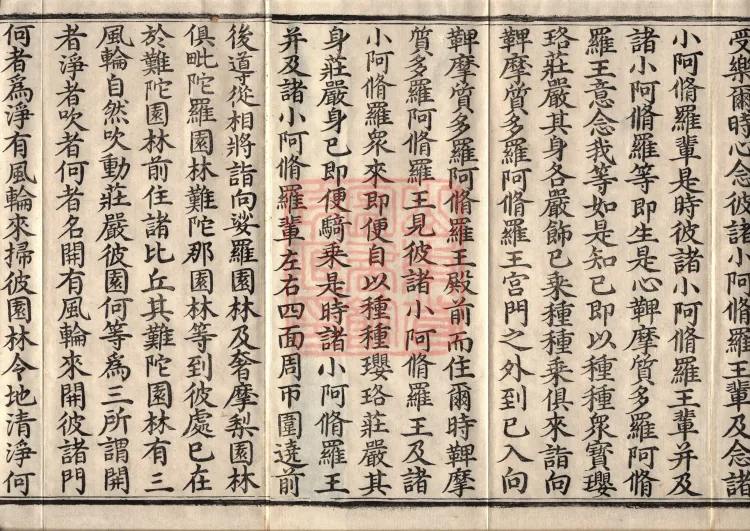 受樂爾時心念彼諸小阿脩羅王輩及念諸
小阿脩羅輩是時彼諸小阿脩羅王輩并及
諸小阿脩羅等即生是心鞞摩質多羅阿脩
羅王意念我等如是知已即以種種眾寶瓔
珞莊嚴其身各嚴飾已乘種種乘俱來詣向
鞞摩質多羅阿脩羅王宮門之外到已入向
鞞摩質多羅阿脩羅王殿前而住爾時鞞摩
質多羅阿脩羅王見彼諸小阿脩羅王及諸
小阿脩羅眾來即便自以種種瓔珞莊嚴其
身莊嚴身已即便騎乘是時諸小阿脩羅王
并及諸小阿脩羅輩左右四面周帀圍遶前
後導從相將詣向娑羅園林及奢摩梨園林
俱毗陀羅園林難陀那園林等到彼處已在
於難陀園林前住諸比丘其難陀園林有三
風輪自然吹動莊嚴彼園何等為三所謂開
者淨者吹者何者名開有風輪來開彼諸門
何者為淨有風輪來掃彼園林令地清淨何